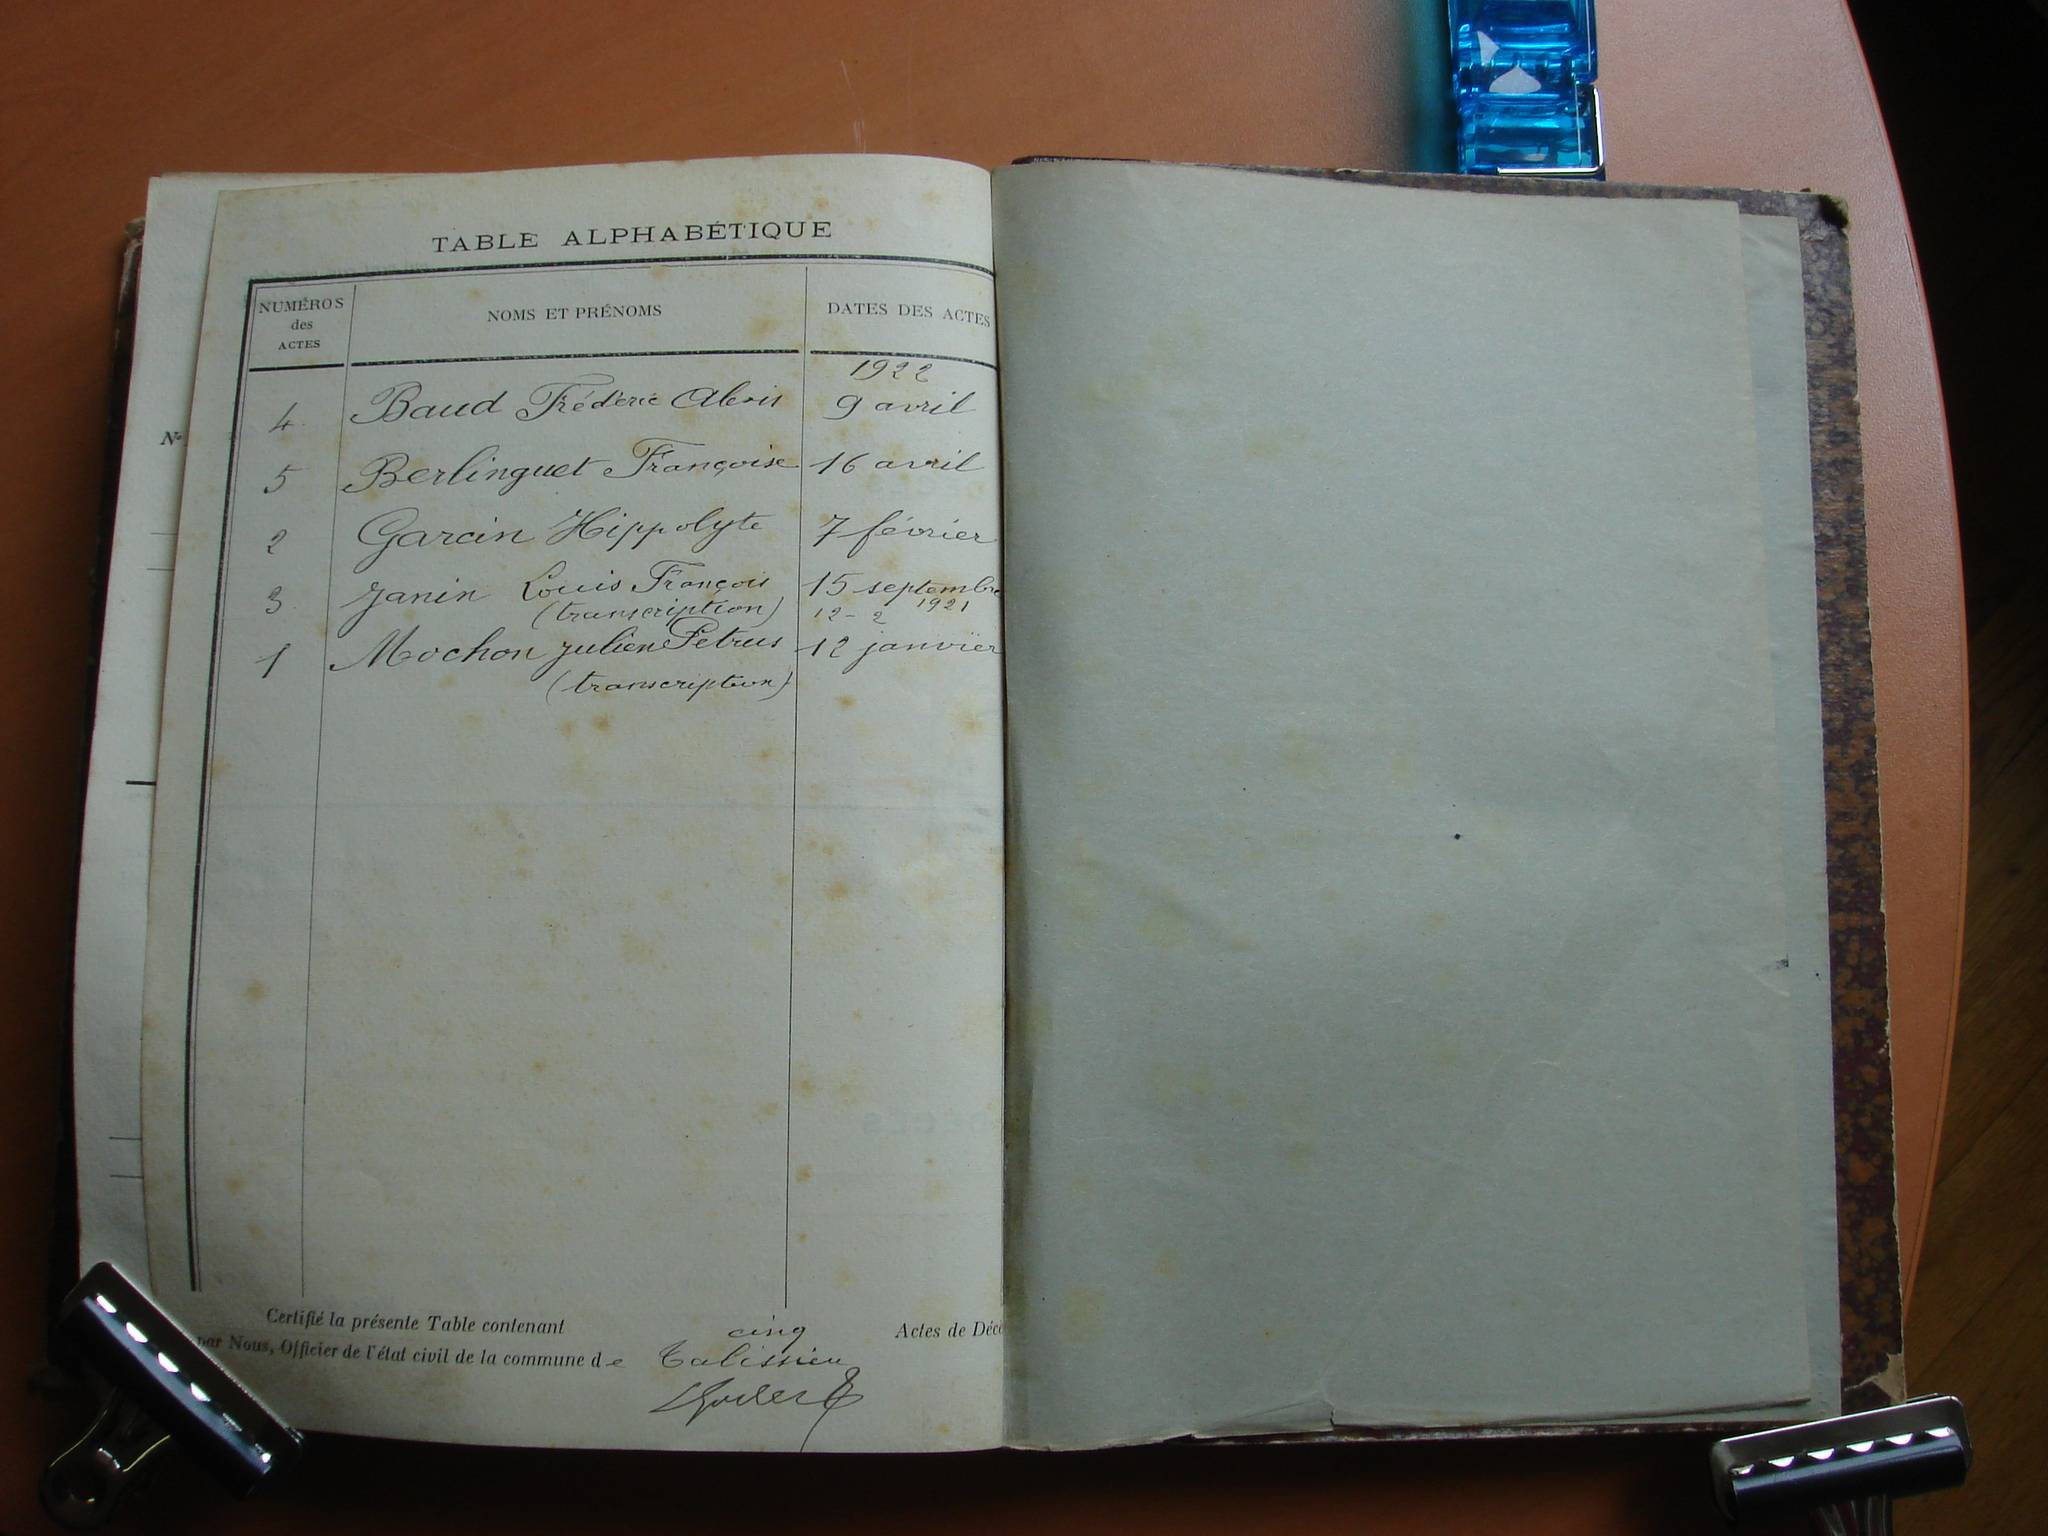 TABLE ALPHABÉTIQUE
NUMÉROS des ACTES
NOMS ET PRÉNOMS
DATES DES ACTES
1922
4 Baud Frédéric Alexis 9 avril
5 Berlinguet Françoise 16 avril
2 Garcin Hippolyte 7 février
3 Janin Louis François 15 septembre
(transcription) 12-2 1921
1 Mochon Julien Petrus 12 janvier
(transcription)
Certifié la présente Table contenant cinq Actes de Décè
par Nous, Officier de l'état civil de la commune de Talissieu
N°